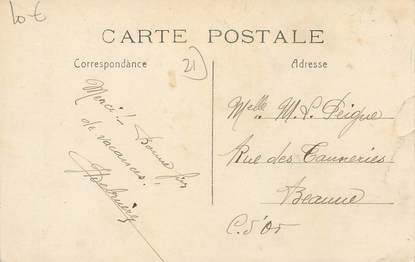 CARTE POSTALE
Correspondance
Adresse
21
Merci! Bonne fin
de vacances!
Melle M.L. Peigue
Rue des Tanneries
Beaune
C. d'Or